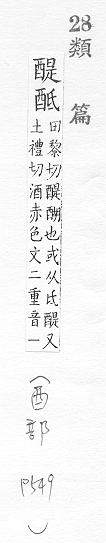 28
類篇
醍䣽
田黎切醍醐也或从氐醍又
土禮切酒赤色文二重音一
(酉部 p549)